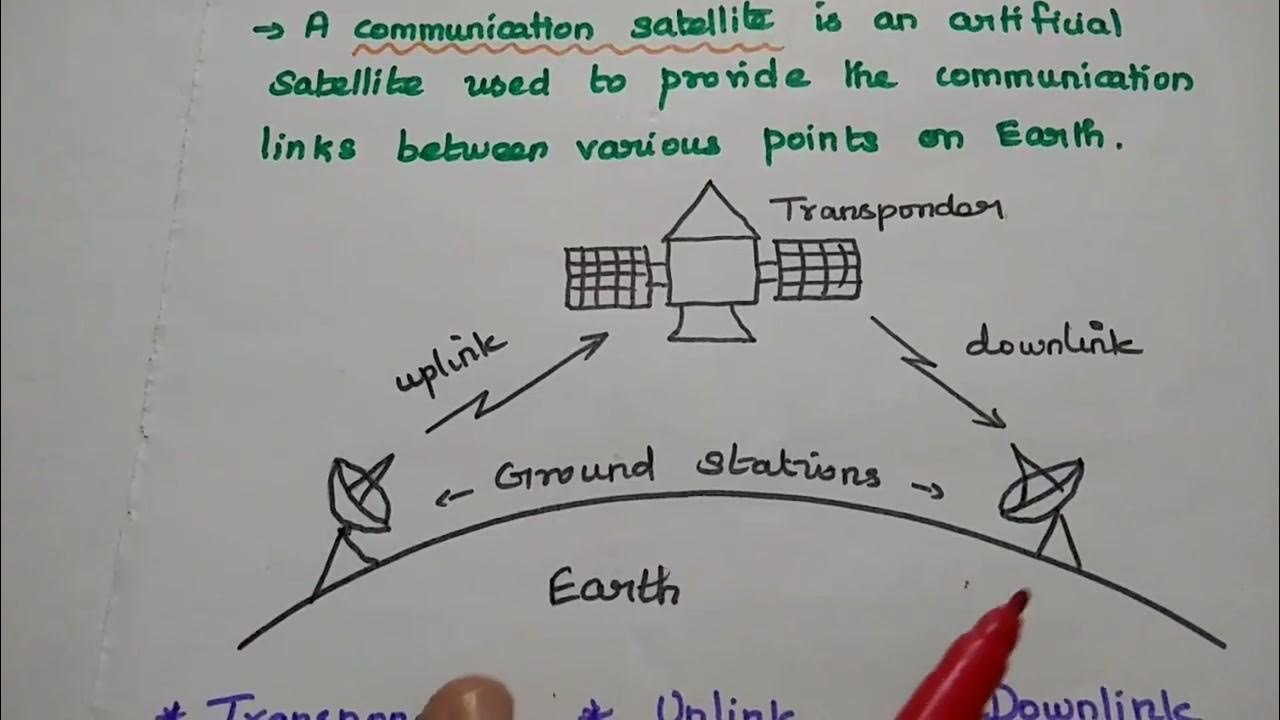 → A communication satellite is an artificial
satellite used to provide the communication
links between various points on Earth.
Transponder
uplink
downlink
← Ground stations →
Earth
* Uplink Downlink